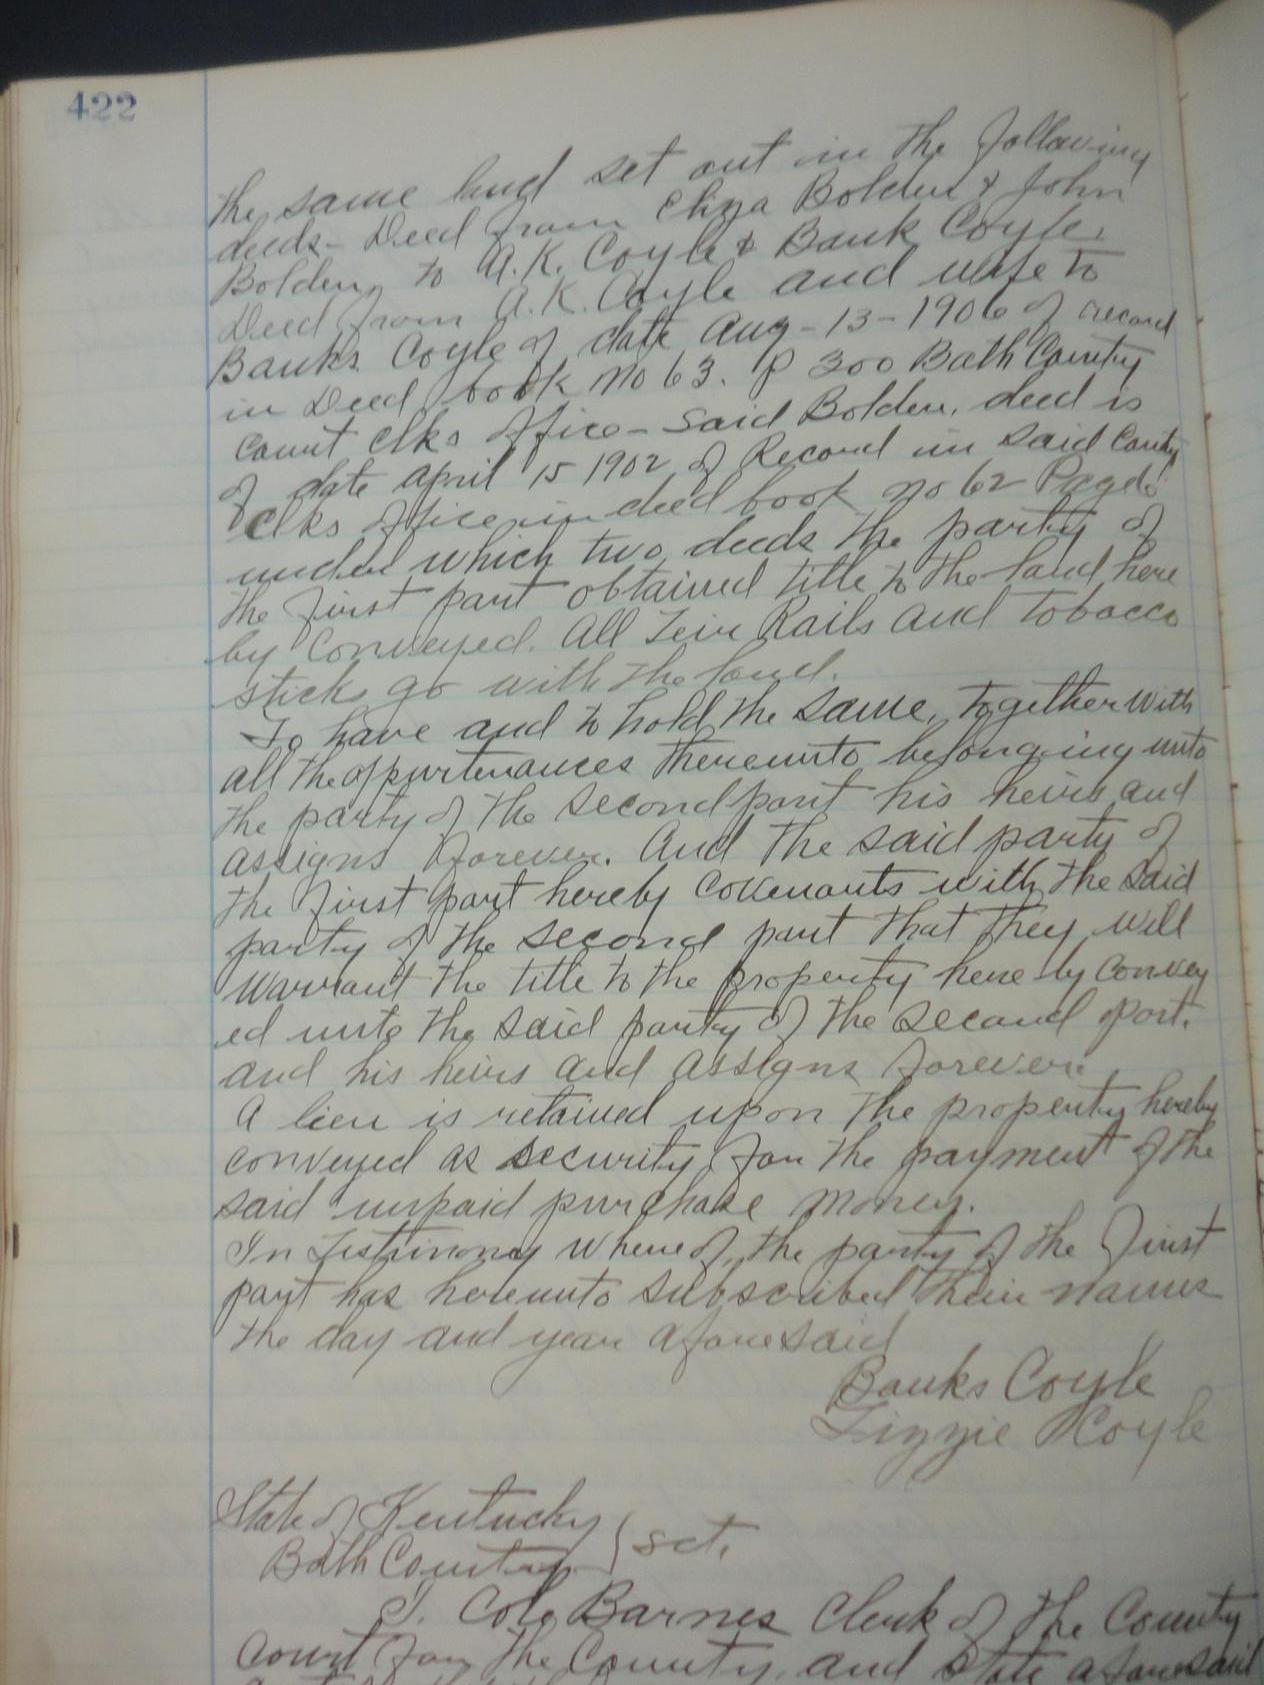 422
the same land set out in the following
deeds - Deed from Eliza Bolden & John
Bolden, to A.K. Coyle & Bank Coyle.
Deed from A.K. Coyle and wife to
Banks Coyle of date Aug-13-1906 of record
in Deed book no 63. P 300 Bath County
Court Clks Office - Said Bolden, deed is
of date April 15 1902 of Record in said County
Clks office in deed book no 62 Page
under which two deeds the party of
the first part obtained title to the land here
by conveyed. All Rails and tobacco
sticks go with the land.
To have and to hold the same, together with
all the appurtenances thereunto belonging unto
the party of the second part his heirs and
assigns forever. And the said party of
the first part hereby covenants with the said
party of the second part that they will
Warrant the title to the property here by convey
ed unto the said party of the second part.
and his heirs and assigns forever.
A lien is retained upon the property hereby
conveyed as security for the payment of the
said unpaid purchase money.
In Testimony whereof, the party of the first
part has hereunto subscribed their names
the day and year aforesaid
Banks Coyle
Lizzie Coyle
State of Kentucky
Bath County } sct.
I. Cole Barnes Clerk of the County
Court for the County and State aforesaid